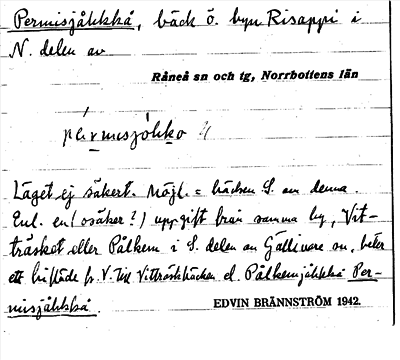 Permisjåkkå, bäck ö. byn Risappi i
N. delen av
Råneå sn och tg, Norrbottens län
pärmisjǻkko
Läget ej säkert. Möjl. = bäcken S. om denna.
Enl. en (osäker?) uppgift från samma by, Vit-
träsket eller Pålkem i S. delen av Gällivare sn, heter
ett biflöde fr. V. till Vitträskbäcken el. Pålkemjåkkå Per-
misjåkkå.
EDVIN BRÄNNSTRÖM 1942.